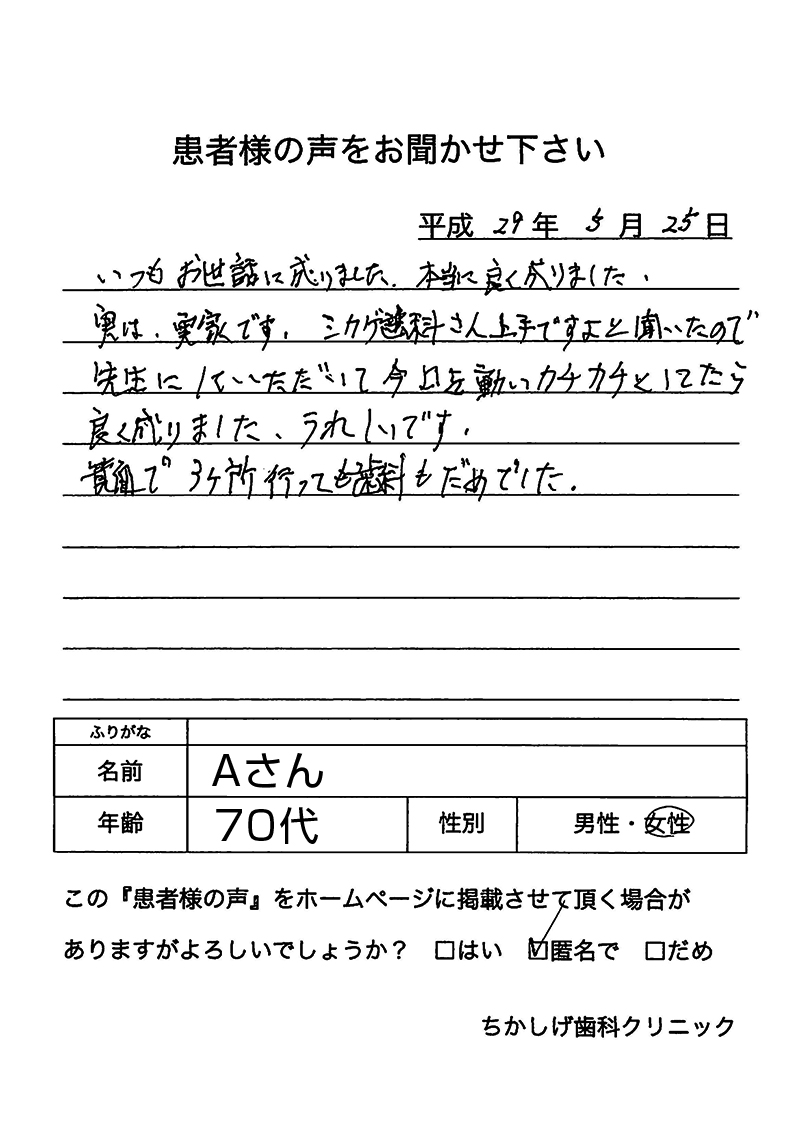 患者様の声をお聞かせ下さい
平成 29 年 5 月 25 日
いつもお世話に成りました。本当に良く成りました、
実は、実家です。シカゲ歯科さん上手ですよと聞いたので
先生にしていただいて今日を動いカチカチとしてたら
良く成りました、うれしいです。
で3ヶ所行っても歯科もだめでした。
ふりがな
名前 Aさん
年齢 70代 性別 男性・女性
この『患者様の声』をホームページに掲載させて頂く場合が
ありますがよろしいでしょうか? □はい ☑匿名で □だめ
ちかしげ歯科クリニック